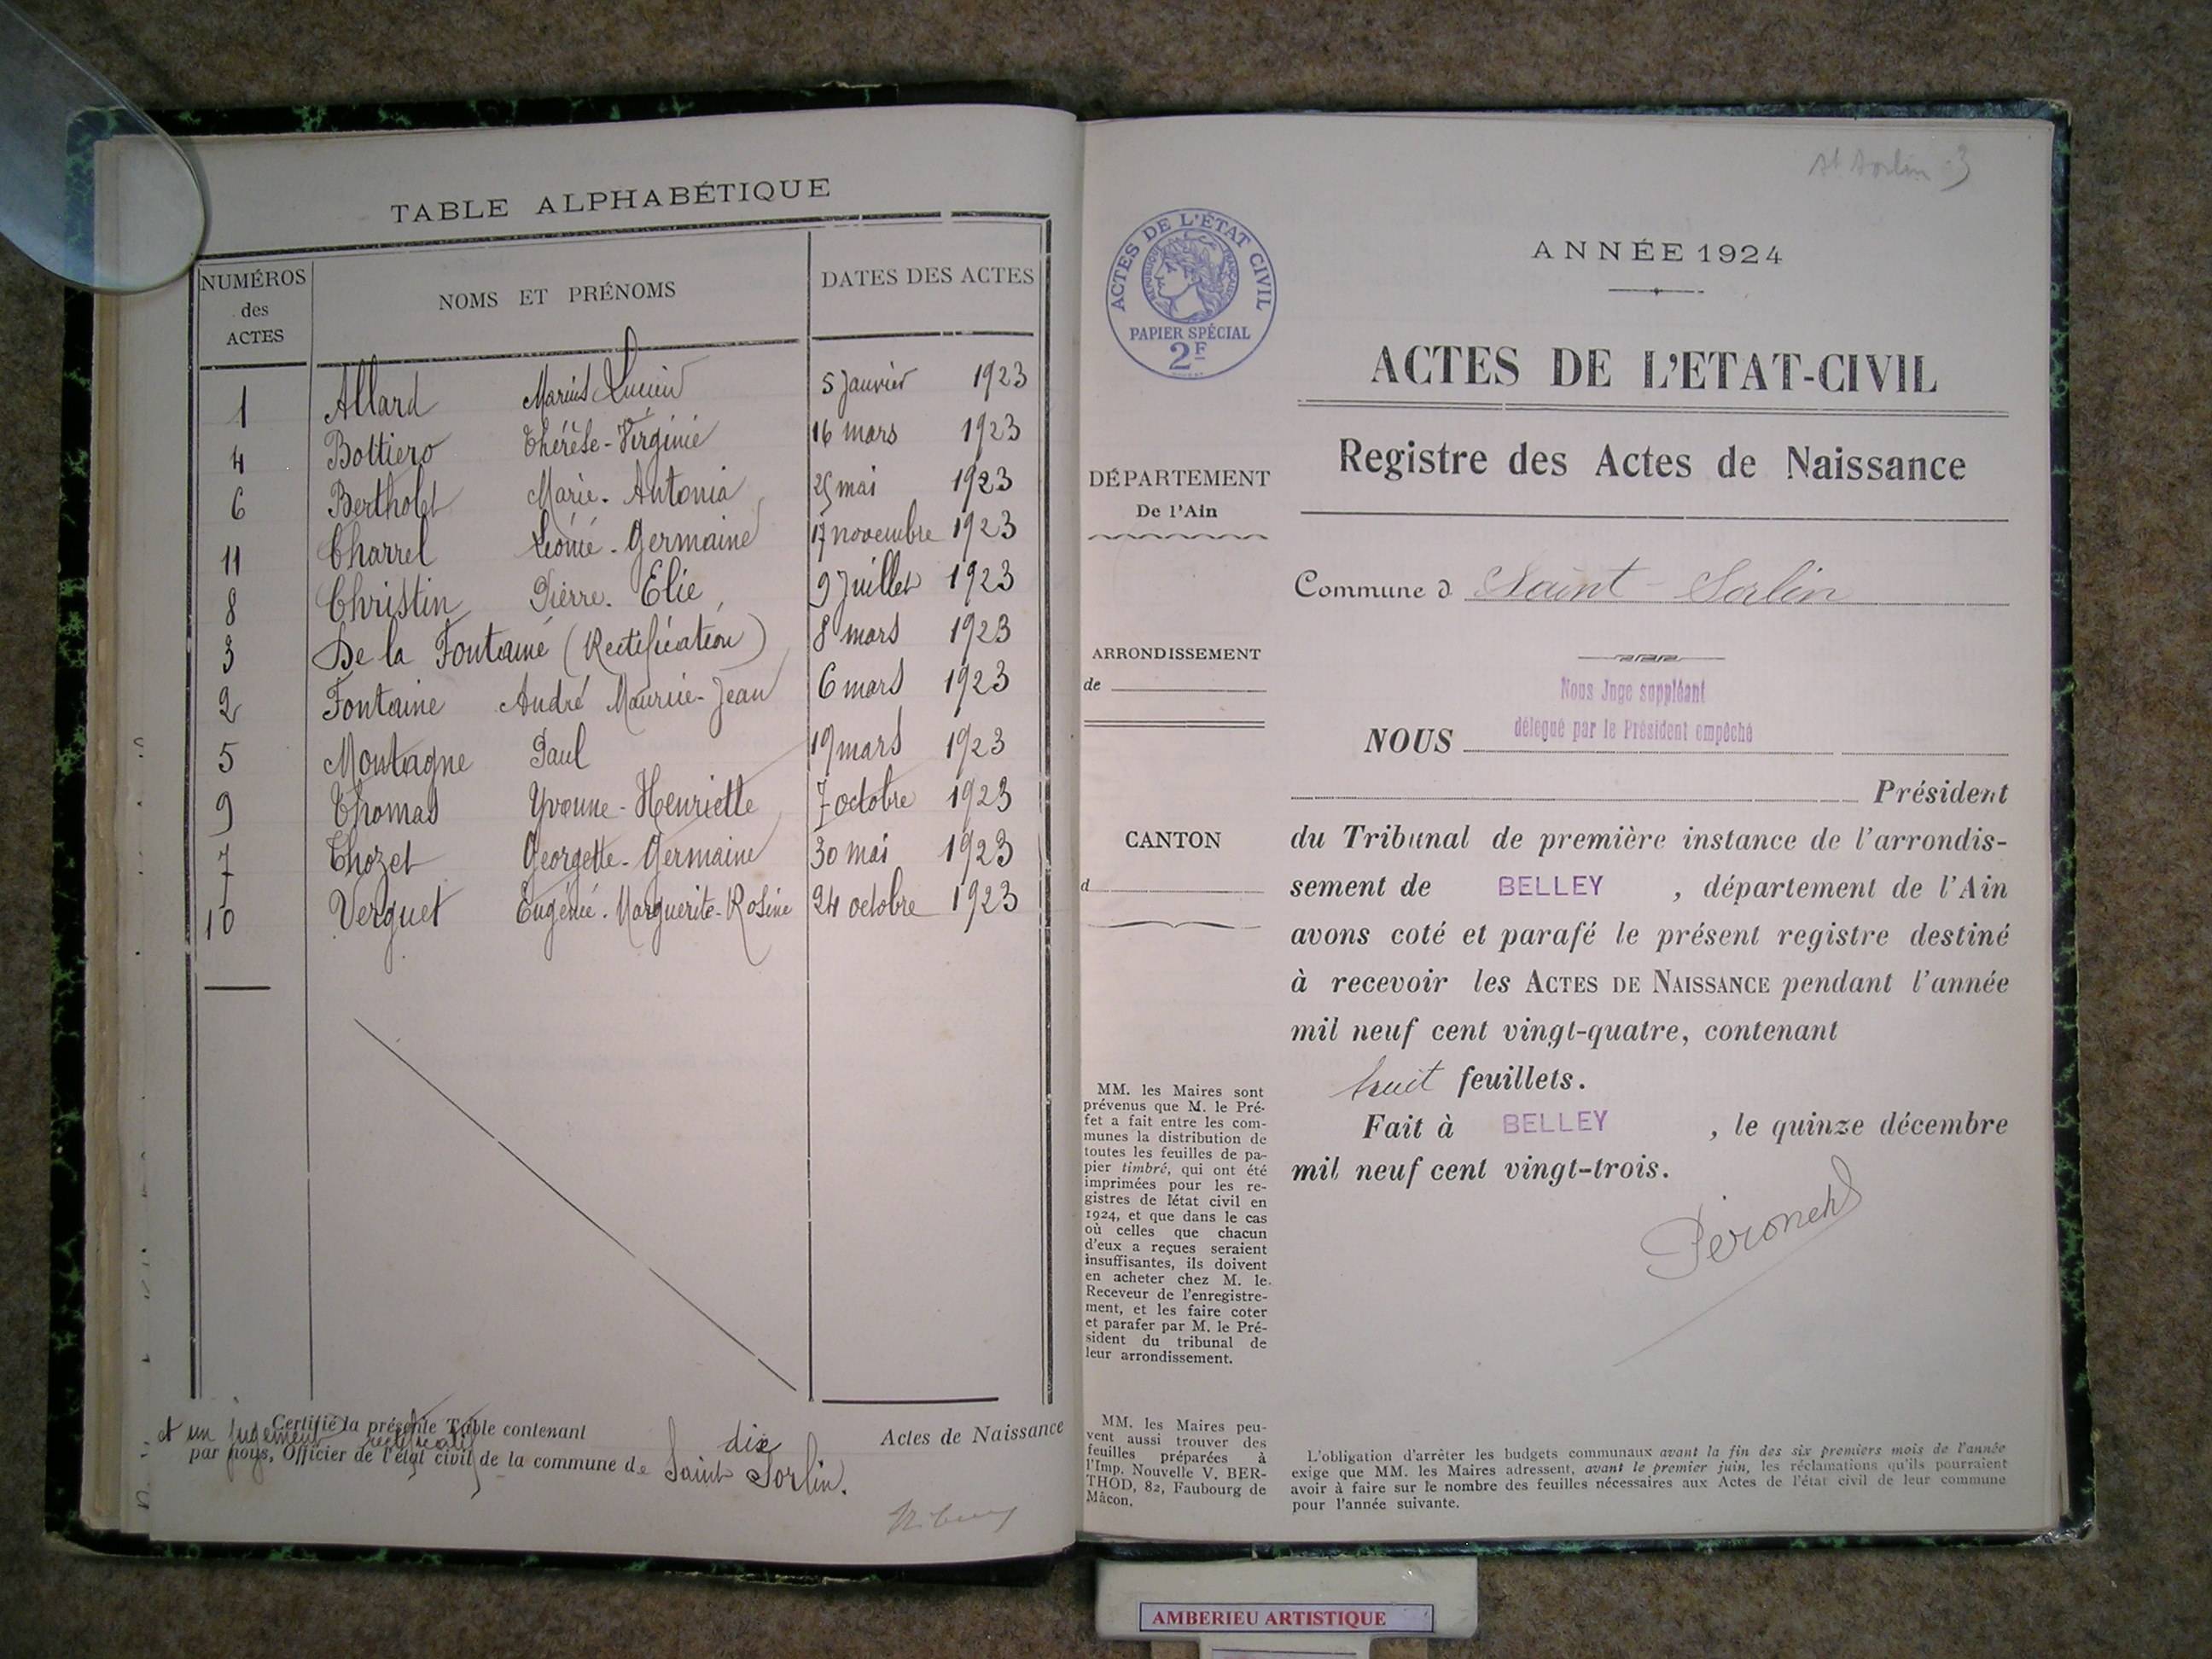 TABLE ALPHABÉTIQUE
NUMÉROS des ACTES NOMS ET PRÉNOMS DATES DES ACTES
1 Allard Marius Lucien 5 Janvier 1923
4 Bottiero Thérèse-Virginie 16 mars 1923
6 Bertholet Marie-Antonia 25 mai 1923
11 Charrel Léonie-Germaine 17 novembre 1923
8 Christin Pierre-Elie 9 Juillet 1923
3 De la Fontaine (Rectification) 8 mars 1923
2 Fontaine André Maurice-Jean 6 mars 1923
5 Montagne Paul 19 mars 1923
9 Thomas Yvonne-Henriette 7 octobre 1923
7 Thozet Georgette-Germaine 30 mai 1923
10 Verguet Eugénie-Marguerite-Rosine 24 octobre 1923
Certifié la présente Table contenant dix Actes de Naissance
et un jugement rectificatif
par nous, Officier de l'état civil de la commune de Saint Sorlin.
St Sorlin - 3
ACTES DE L'ÉTAT CIVIL
RÉPUBLIQUE FRANÇAISE
PAPIER SPÉCIAL
2F
DÉPARTEMENT
De l'Ain
ARRONDISSEMENT
de
CANTON
d
MM. les Maires sont
prévenus que M. le Pré-
fet a fait entre les com-
munes la distribution de
toutes les feuilles de pa-
pier timbré, qui ont été
imprimées pour les re-
gistres de létat civil en
1924, et que dans le cas
où celles que chacun
d'eux a reçues seraient
insuffisantes, ils doivent
en acheter chez M. le
Receveur de l'enregistre-
ment, et les faire coter
et parafer par M. le Pré-
sident du tribunal de
leur arrondissement.
MM. les Maires peu-
vent aussi trouver des
feuilles préparées à
l'Imp. Nouvelle V. BER-
THOD, 82, Faubourg de
Mâcon.
ANNÉE 1924
ACTES DE L'ETAT-CIVIL
Registre des Actes de Naissance
Commune d Saint-Sorlin
Nous Juge suppléant
délegué par le Président empêché
NOUS
Président
du Tribunal de première instance de l'arrondis-
sement de BELLEY , département de l'Ain
avons coté et parafé le présent registre destiné
à recevoir les ACTES DE NAISSANCE pendant l'année
mil neuf cent vingt-quatre, contenant
huit feuillets.
Fait à BELLEY , le quinze décembre
mil neuf cent vingt-trois.
L'obligation d'arrêter les budgets communaux avant la fin des six premiers mois de l'année
exige que MM. les Maires adressent, avant le premier juin, les réclamations qu'ils pourraient
avoir à faire sur le nombre des feuilles nécessaires aux Actes de l'état civil de leur commune
pour l'année suivante.
AMBERIEU ARTISTIQUE